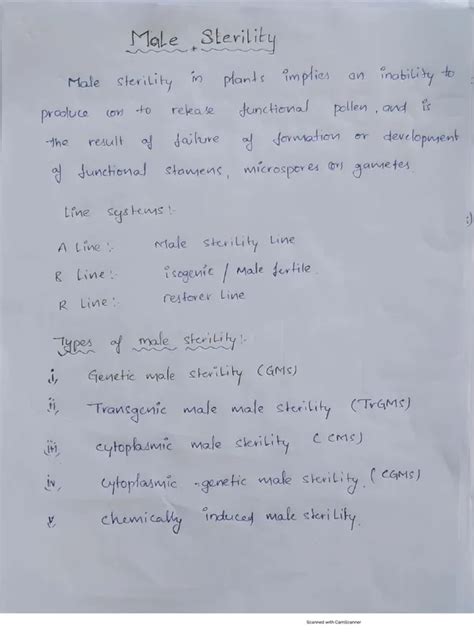 Male Sterility
Male sterility in plants implies an inability to
produce (or) to release functional pollen, and is
the result of failure of formation or development
of functional stamens, microspores (or) gametes.
Line systems :-
A Line :- Male sterility Line
R Line :- isogenic / Male fertile.
R Line :- restorer Line
Types of male sterility :-
i, Genetic male sterility (GMS)
ii, Transgenic male male sterility (TrGMS)
iii, cytoplasmic male sterility (CMS)
iv, cytoplasmic -genetic male sterility. (CGMS)
v, chemically induced male sterility.
Scanned with CamScanner